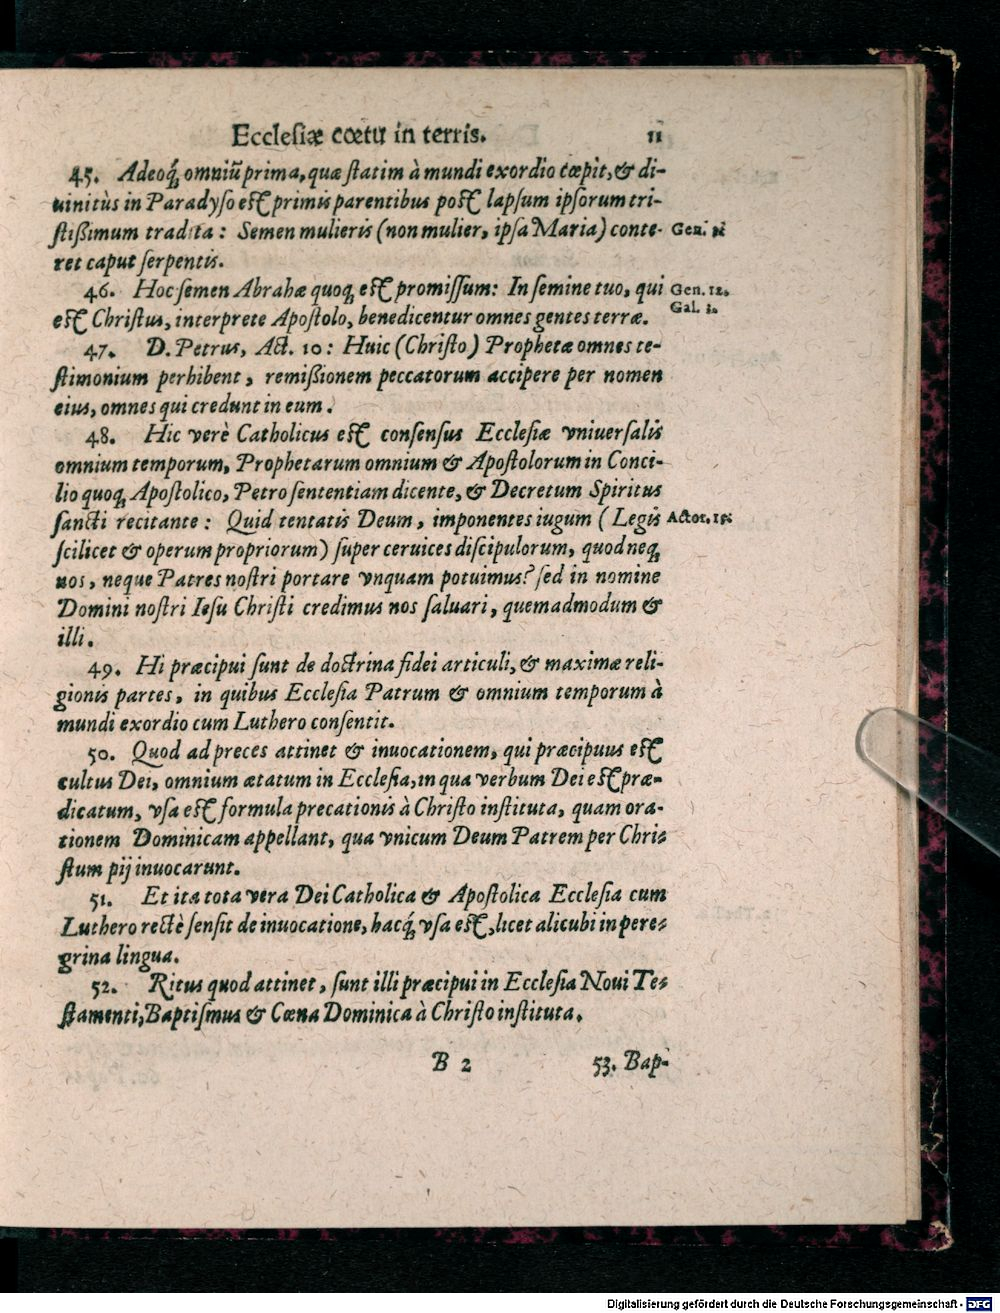 Ecclesiæ cœtu in terris. 11
45. Adeoq́; omniũ prima, quæ statim à mundi exordio cœpit, & di-
uinitùs in Paradyso est primis parentibus post lapsum ipsorum tri-
stißimum tradita: Semen mulieris (non mulier, ipsa Maria) conte- Gen.
ret caput serpentis.
46. Hoc semen Abrahæ quoq; est promissum: In semine tuo, qui Gen. 12.
est Christus, interprete Apostolo, benedicentur omnes gentes terræ. Gal. 3.
47. D. Petrus, Act. 10: Huic (Christo) Prophetæ omnes te-
stimonium perhibent, remißionem peccatorum accipere per nomen
eius, omnes qui credunt in eum.
48. Hic verè Catholicus est consensus Ecclesiæ vniuersalis
omnium temporum, Prophetarum omnium & Apostolorum in Conci-
lio quoq; Apostolico, Petro sententiam dicente, & Decretum Spiritus
sancti recitante: Quid tentatis Deum, imponentes iugum (Legis Actor. 15.
scilicet & operum propriorum) super ceruices discipulorum, quod neq;
nos, neque Patres nostri portare vnquam potuimus? sed in nomine
Domini nostri Iesu Christi credimus nos saluari, quemadmodum &
illi.
49. Hi præcipui sunt de doctrina fidei articuli, & maximæ reli-
gionis partes, in quibus Ecclesia Patrum & omnium temporum à
mundi exordio cum Luthero consentit.
50. Quod ad preces attinet & inuocationem, qui præcipuus est
cultus Dei, omnium ætatum in Ecclesia, in qua verbum Dei est præ-
dicatum, vsa est formula precationis à Christo instituta, quam ora-
tionem Dominicam appellant, qua vnicum Deum Patrem per Chri-
stum pij inuocarunt.
51. Et ita tota vera Dei Catholica & Apostolica Ecclesia cum
Luthero rectè sensit de inuocatione, hacq́; vsa est, licet alicubi in pere-
grina lingua.
52. Ritus quod attinet, sunt illi præcipui in Ecclesia Noui Te-
stamenti, Baptismus & Cœna Dominica à Christo instituta.
B 2 53. Bap-
Digitalisierung gefördert durch die Deutsche Forschungsgemeinschaft - DFG